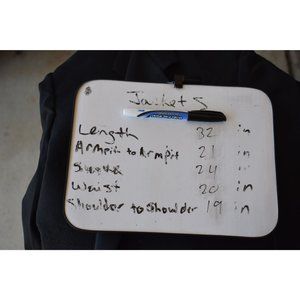 Jacket S
Length 32 in
Armpit to Armpit 21 in
Sleeve 24 in
Waist 20 in
Shoulder to Shoulder 19 in